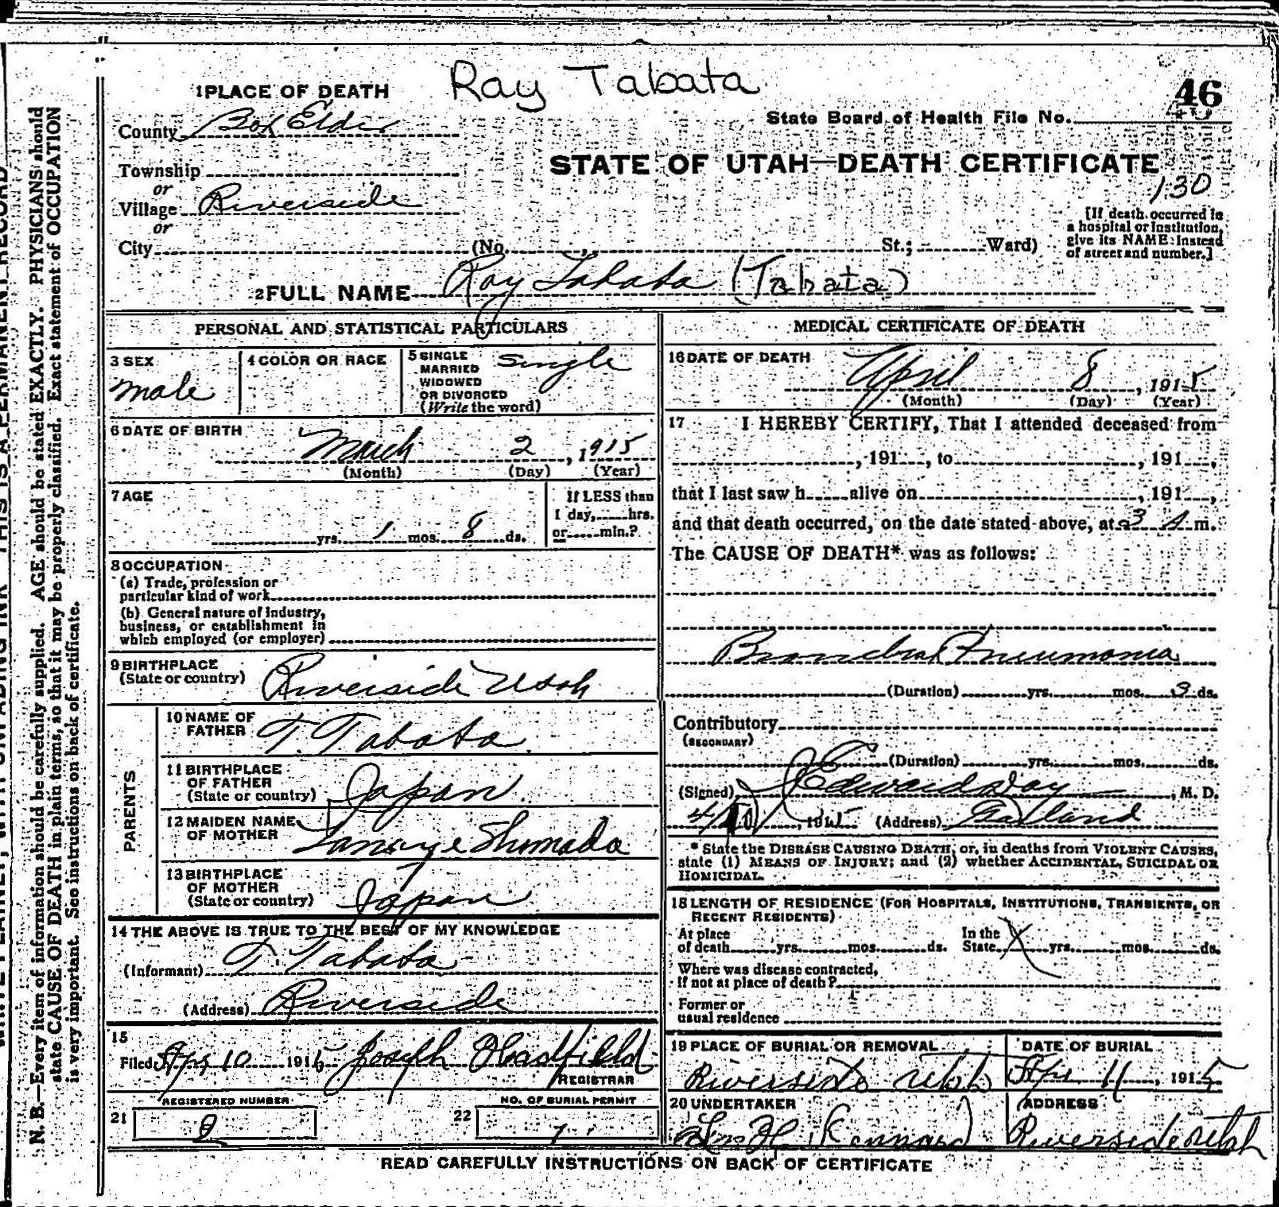 Ray Tabata
46
1 PLACE OF DEATH
County Box Elder
State Board of Health File No.
STATE OF UTAH—DEATH CERTIFICATE
130
Township
or
Village Riverside
or
City (No. , St.; Ward)
[If death occurred in
a hospital or institution,
give its NAME instead
of street and number.]
2 FULL NAME Ray Tabata (Tabata)
PERSONAL AND STATISTICAL PARTICULARS
3 SEX
male
4 COLOR OR RACE
5 SINGLE
MARRIED
WIDOWED
OR DIVORCED
(Write the word)
single
6 DATE OF BIRTH
March 2, 1915
(Month) (Day) (Year)
7 AGE
yrs. 1 mos. 8 ds.
If LESS than
1 day, hrs.
or min.?
8 OCCUPATION
(a) Trade, profession or
particular kind of work
(b) General nature of industry,
business, or establishment in
which employed (or employer)
9 BIRTHPLACE
(State or country)
Riverside Utah
PARENTS
10 NAME OF
FATHER
T. Tabata
11 BIRTHPLACE
OF FATHER
(State or country)
Japan
12 MAIDEN NAME
OF MOTHER
Shumada
13 BIRTHPLACE
OF MOTHER
(State or country)
Japan
14 THE ABOVE IS TRUE TO THE BEST OF MY KNOWLEDGE
(Informant) T. Tabata
(Address) Riverside
15
Filed Apr 10 1915 Joseph Hadfield
REGISTRAR
REGISTERED NUMBER
21 2
NO. OF BURIAL PERMIT
22 1
MEDICAL CERTIFICATE OF DEATH
16 DATE OF DEATH
April 8, 1915
(Month) (Day) (Year)
17 I HEREBY CERTIFY, That I attended deceased from
, 191 , to , 191 ,
that I last saw h alive on , 191 ,
and that death occurred, on the date stated above, at 3 A m.
The CAUSE OF DEATH* was as follows:
Bronchial Pneumonia
(Duration) yrs. mos. 3 ds.
Contributory
(SECONDARY)
(Duration) yrs. mos. ds.
(Signed) J Edward Day, M. D.
4/10, 1915 (Address) Garland
* State the DISEASE CAUSING DEATH, or, in deaths from VIOLENT CAUSES,
state (1) MEANS OF INJURY; and (2) whether ACCIDENTAL, SUICIDAL OR
HOMICIDAL.
18 LENGTH OF RESIDENCE (FOR HOSPITALS, INSTITUTIONS, TRANSIENTS, OR
RECENT RESIDENTS)
At place
of death yrs. mos. ds.
In the
State yrs. mos. ds.
Where was disease contracted,
If not at place of death?
Former or
usual residence
19 PLACE OF BURIAL OR REMOVAL
Riverside Utah
DATE OF BURIAL
Apr 11, 1915
20 UNDERTAKER
H Kennard
ADDRESS
Riverside Utah
READ CAREFULLY INSTRUCTIONS ON BACK OF CERTIFICATE
N. B.—Every item of information should be carefully supplied. AGE should be stated EXACTLY. PHYSICIANS should
state CAUSE OF DEATH in plain terms, so that it may be properly classified. Exact statement of OCCUPATION
is very important. See instructions on back of certificate.